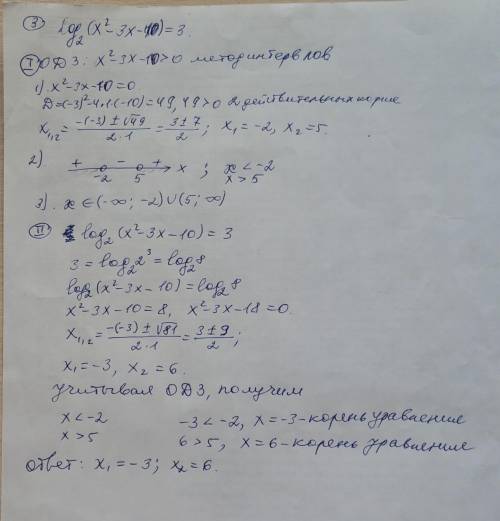 ③ Log₂(x²-3x-10)=3.
Ⓘ ОДЗ: x²-3x-10>0 метод интервалов
1) x²-3x-10=0
D=(-3)²-4·1·(-10)=49, 49>0 2 действительных корня
x₁,₂ = (-(-3) ± √49)/(2·1) = (3±7)/2; x₁=-2, x₂=5.
2) + - + x ; x<-2
-2 5 x>5
3). x∈(-∞; -2)∪(5; ∞)
Ⓘ︎Ⓘ log₂(x²-3x-10)=3
3=log₂2³=log₂8
log₂(x²-3x-10)=log₂8
x²-3x-10=8, x²-3x-18=0.
x₁,₂ = (-(-3) ± √81)/(2·1) = (3±9)/2;
x₁=-3, x₂=6.
учитывая ОДЗ, получим
x<-2 -3<-2, x=-3-корень уравнения
x>5 6>5, x=6-корень уравнения
ответ: x₁=-3; x₂=6.